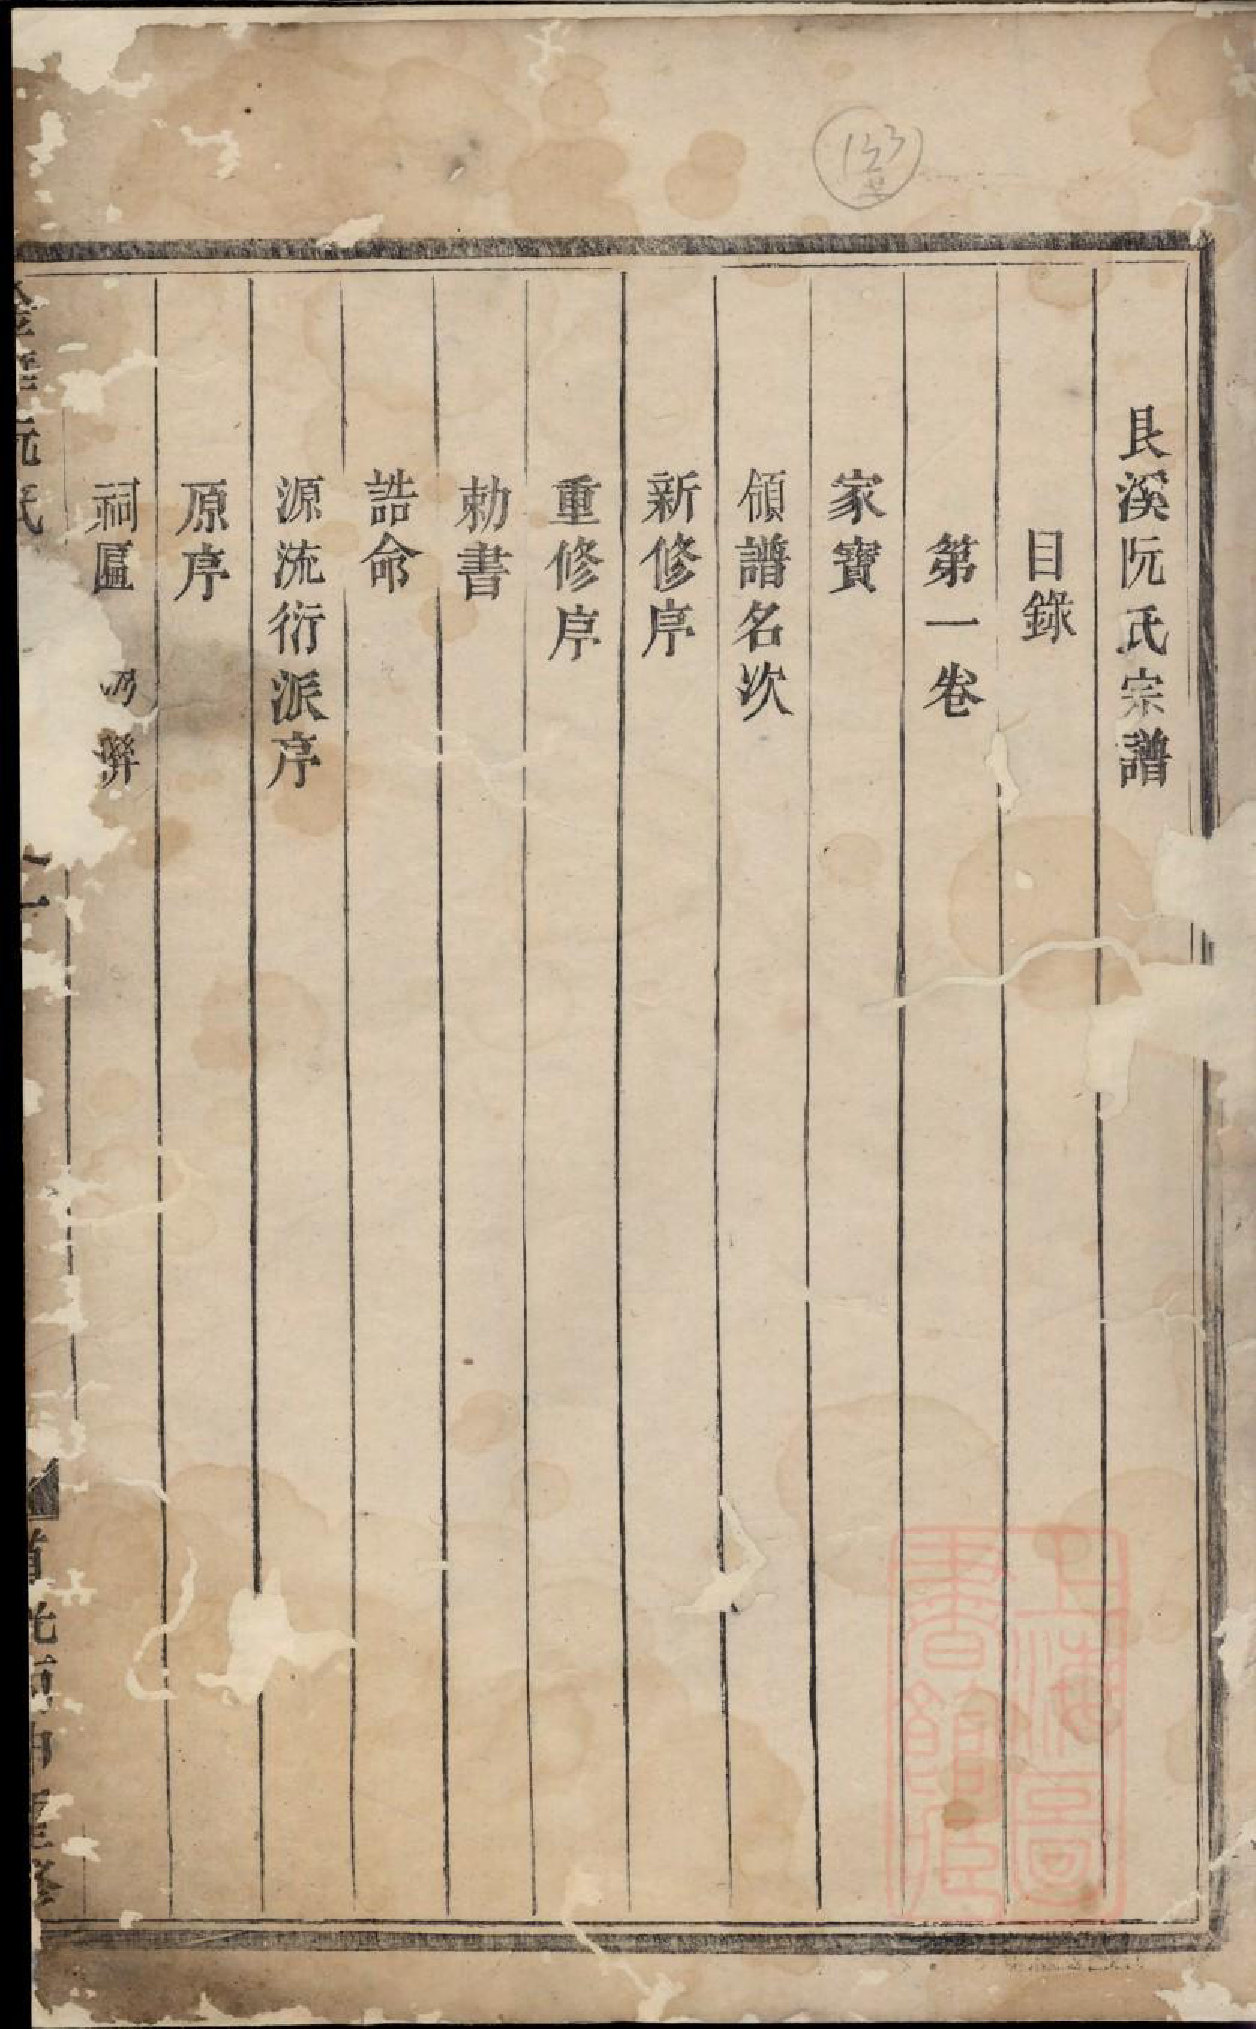 艮溪阮氏宗譜
目錄
第一卷
家寶
領譜名次
新修序
重修序
勅書
誥命
源流衍派序
原序
祠匾 聯
阮氏
上海圖書館藏
153